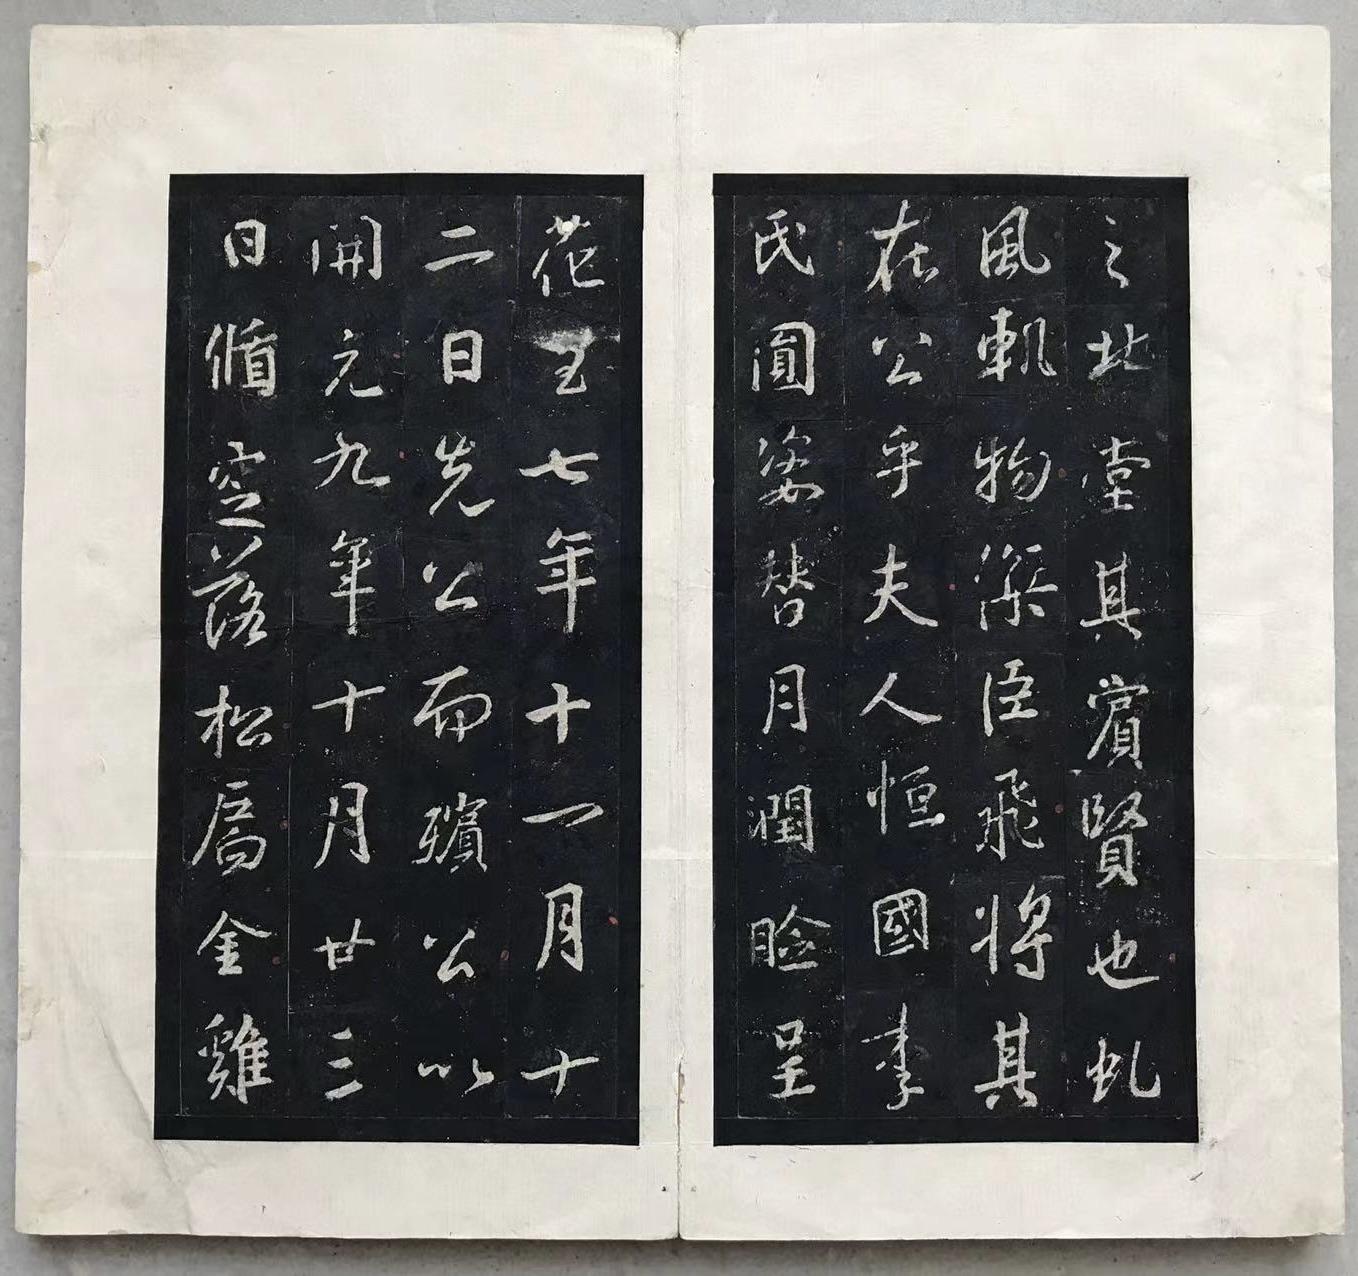 之北堂其賞賢也虬
風軌物深臣飛將其
在公乎夫人恒國李
氏圓姿替月潤臉呈
花至七年十一月十
二日先公而殯公以
開元九年十月廿三
日循窆落松扃金雞